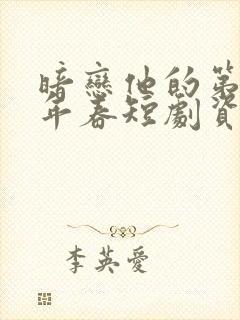 暗戀他的第
年春短劇資
李英愛